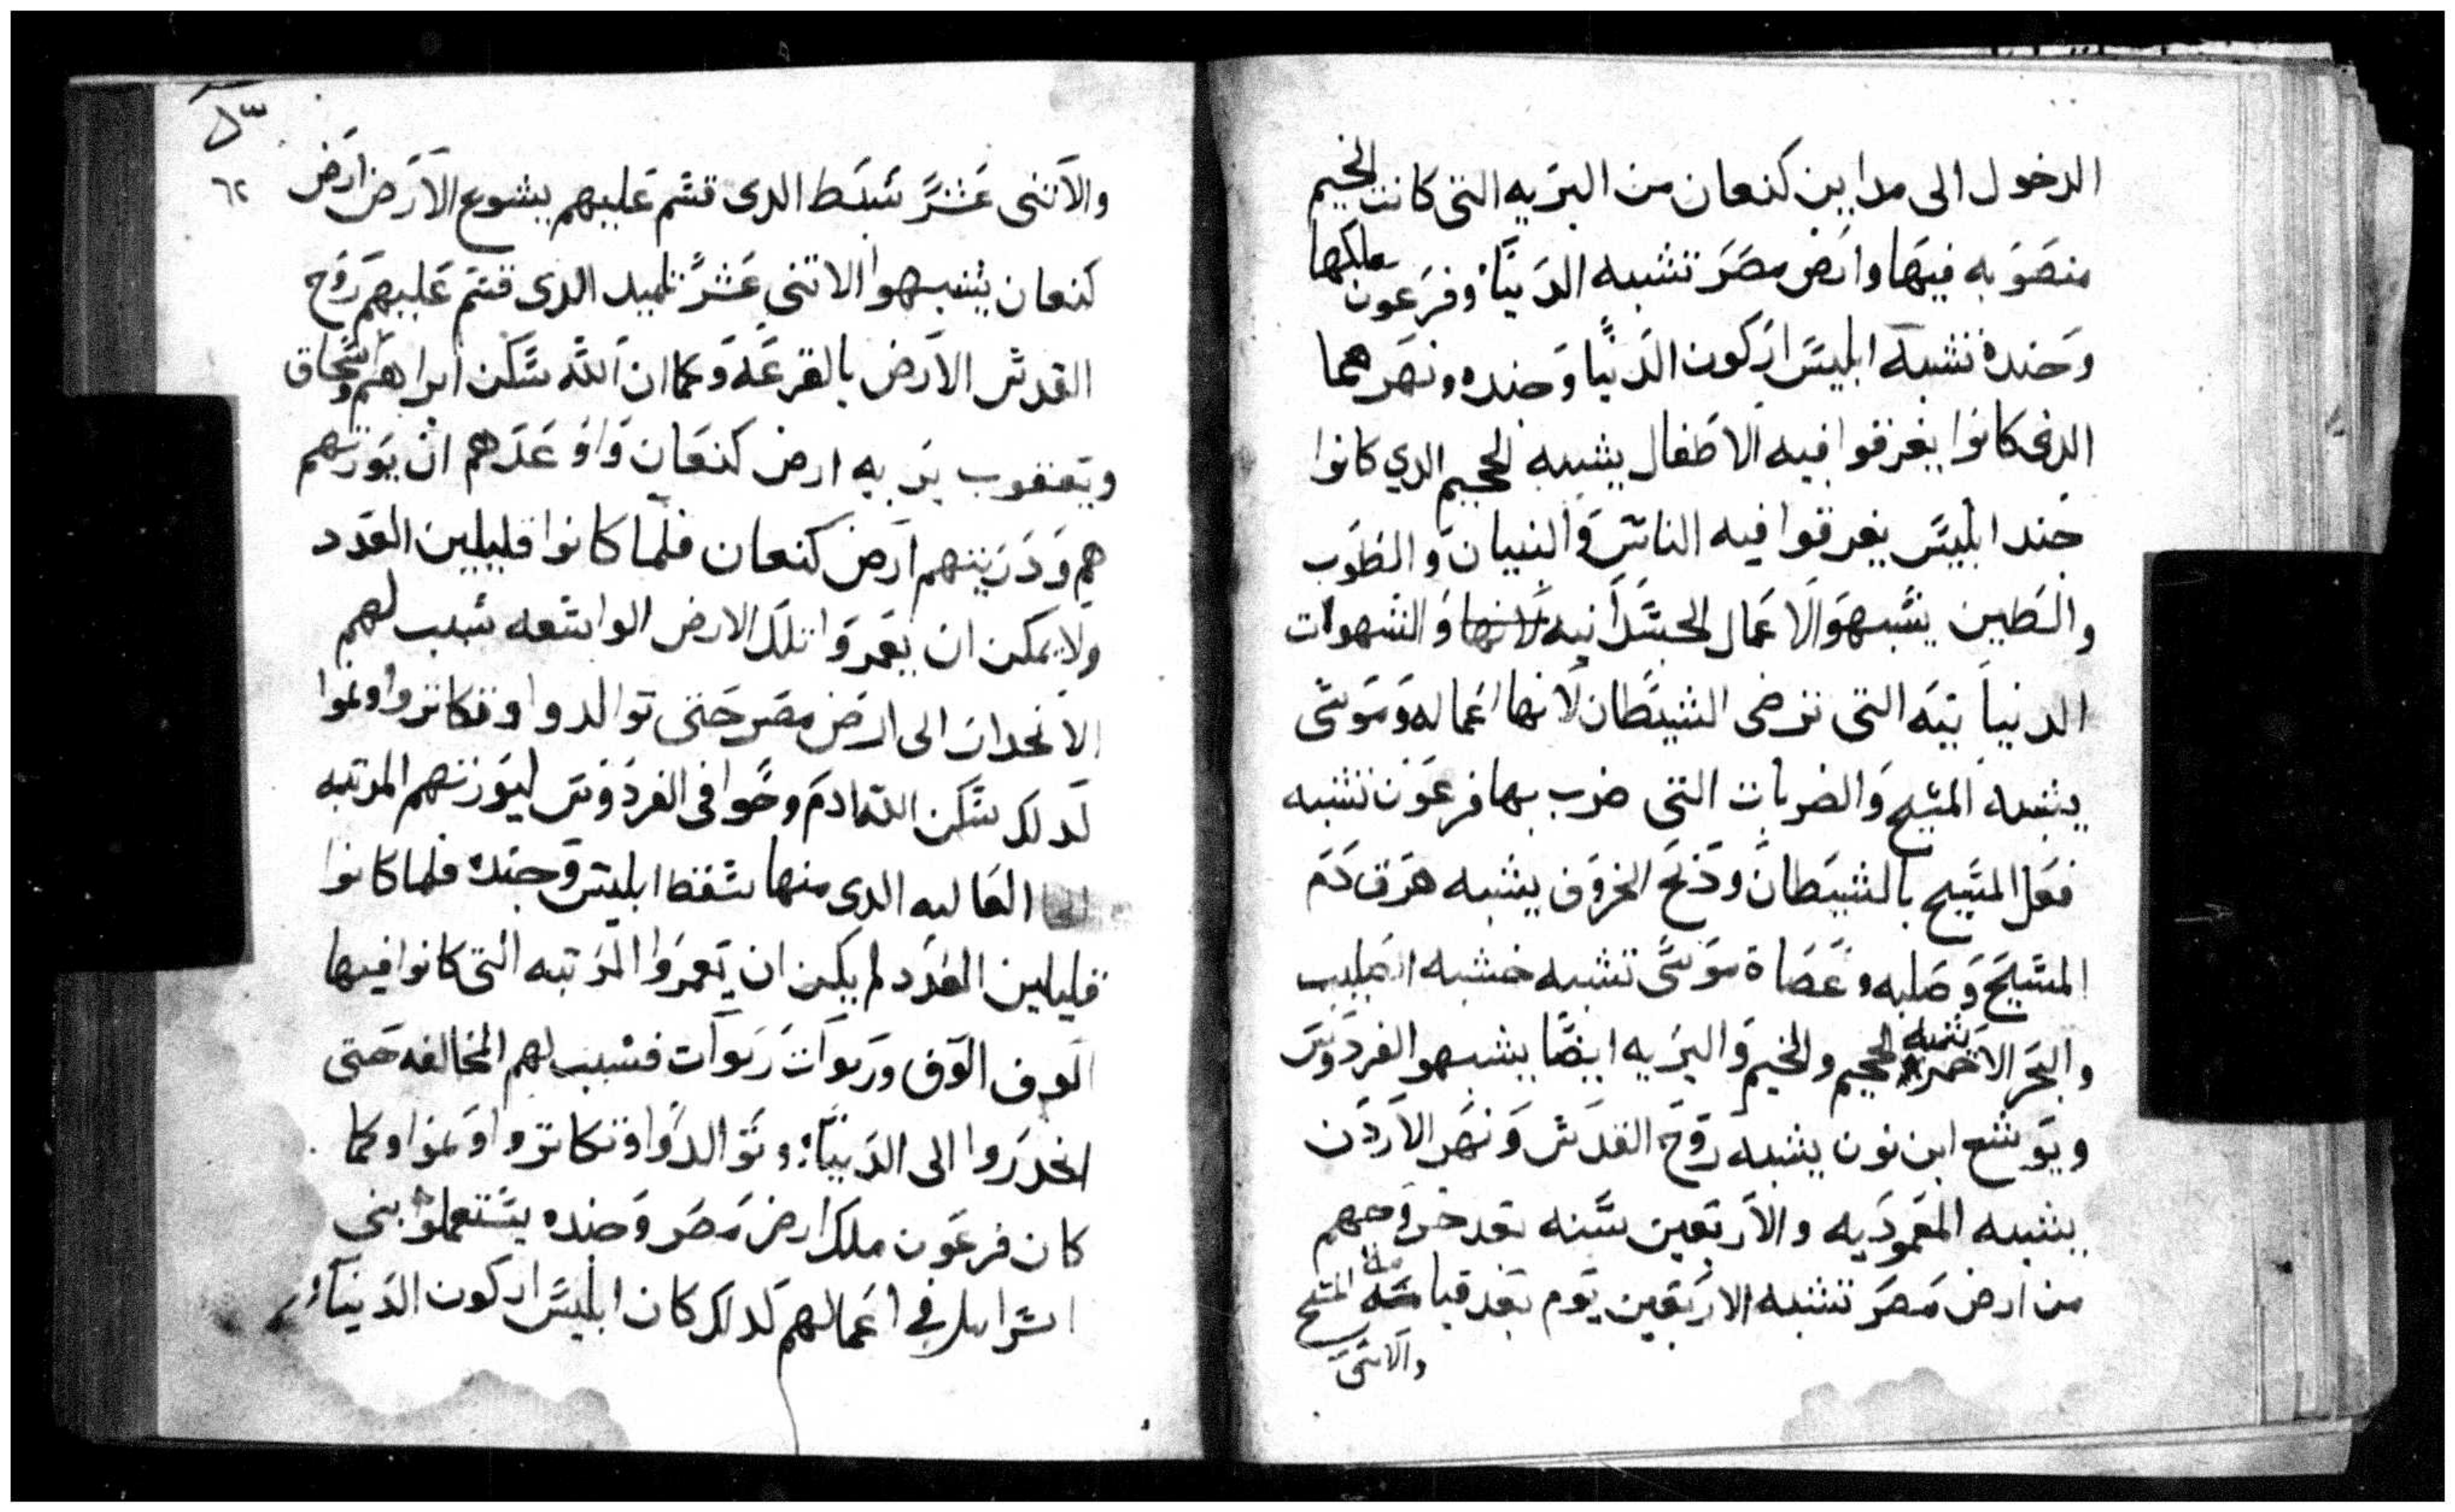 الدخول الى مداين كنعان من البريه التى كانت الخيم
منصوبه فيها وارض مصر تشبه الدنيا وفرعون ملكها
وجنده تشبه ابليس اركون الدنيا وجنده ونهرهما
الدى كانوا يغرقوا فيه الاطفال يشبه الجحيم الدي كانوا
جند ابليس يغرقوا فيه الناس والنبيان والطوب
والطين يشبهوا الاعمال الجسدانيه لانها والشهوات
الدنياتيه التى ترضى الشيطان لانها اعماله وموسى
يشبه المسيح والضربات التى ضرب بها فرعون تشبه
فعل المسيح بالشيطان ودبح الخروف يشبه هرق دم
المسيح وصلبه وعصاة موسى تشبه خشبه الصليب
والبحر الاحمر يشبه الجحيم والخيم والبريه ايضا يشبهوا الفردوس
ويوشع ابن نون يشبه روح القدس ونهر الاردن
يشبه المعموديه والاربعين سنه بعد خروجهم
من ارض مصر تشبه الاربعين يوم بعد قيامة المسيح
والاتنى
٦٢
والاتنى عشر سبط الدى قسم عليهم يشوع الارض ارض
كنعان يشبهوا الاتني عشر تلميد الدى قسم عليهم روح
القدس الارض بالقرعه وكما ان الله سكن ابراهيم واسحاق
ويعقوب بريه ارض كنعان واوعدهم ان يورتهم
هم ودريتهم ارض كنعان فلما كانوا قليلين العدد
ولا يمكن ان يعمروا تلك الارض الواسعه سبب لهم
الانحدار الى ارض مصر حتى توالدوا وتكاتروا ونموا
لدلك سكن الله ادم وحوا فى الفردوس ليورتهم المرتبه
العاليه الدى منها سقط ابليس وجنده فلما كانوا
قليلين العدد لم يكن ان يعمروا المرتبه التى كانوا فيها
الوف الوف وربوات ربوات فسبب لهم المخالفه حتى
انحدروا الى الدنيا وتوالدوا وتكاتروا ونموا وكما
كان فرعون ملك ارض مصر وجنده يستعملوا بني
اسراييل في اعمالهم لدلك كان ابليس اركون الدنيا